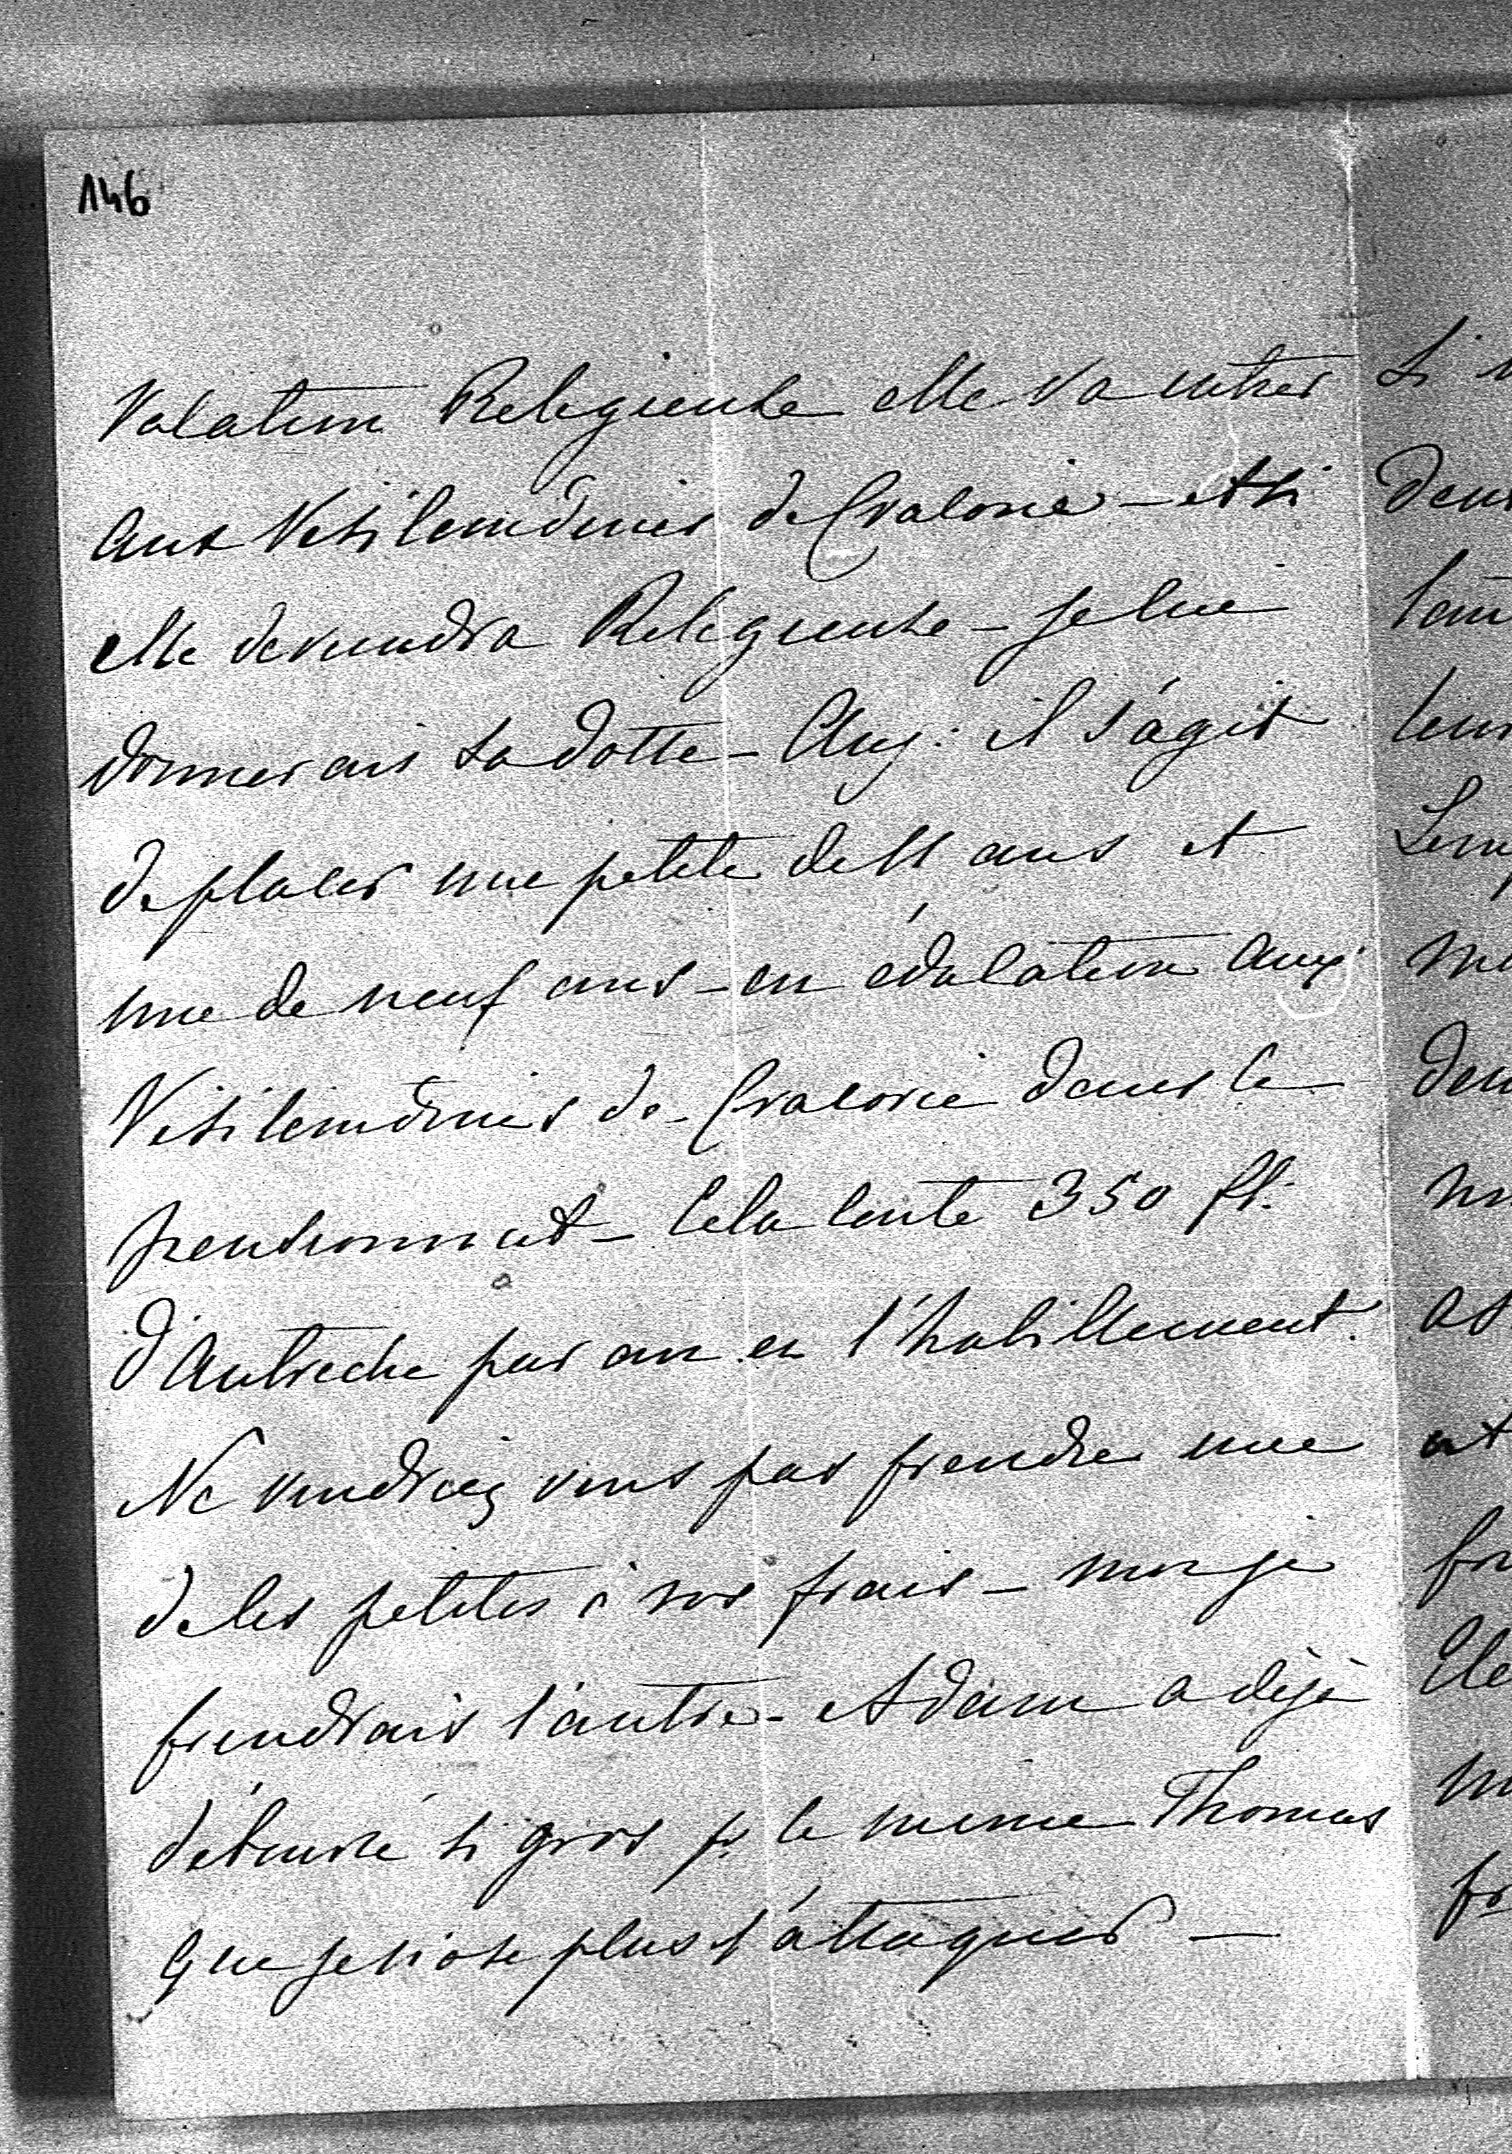 146
Vocation Religieuse elle va entrer
aux Visitandines de Cracovie – et si
elle deviendra Religieuse – je lui
donnerais sa dotte – Auj: il s'agit
de placer une petite de 11 ans et
une de neuf ans – en éducation aux
Visitandines de Cracovie dans le
pensionnat – Cela coute 350 fl:
d'Autriche par an en l'habillement.
Ne voudriez vous pas prendre une
de ces petites à vos frais – moi je
prendrais l'autre – Adam a déjà
débourse si gros pr le meme Thomas
que je n'ose plus l'attaquer –